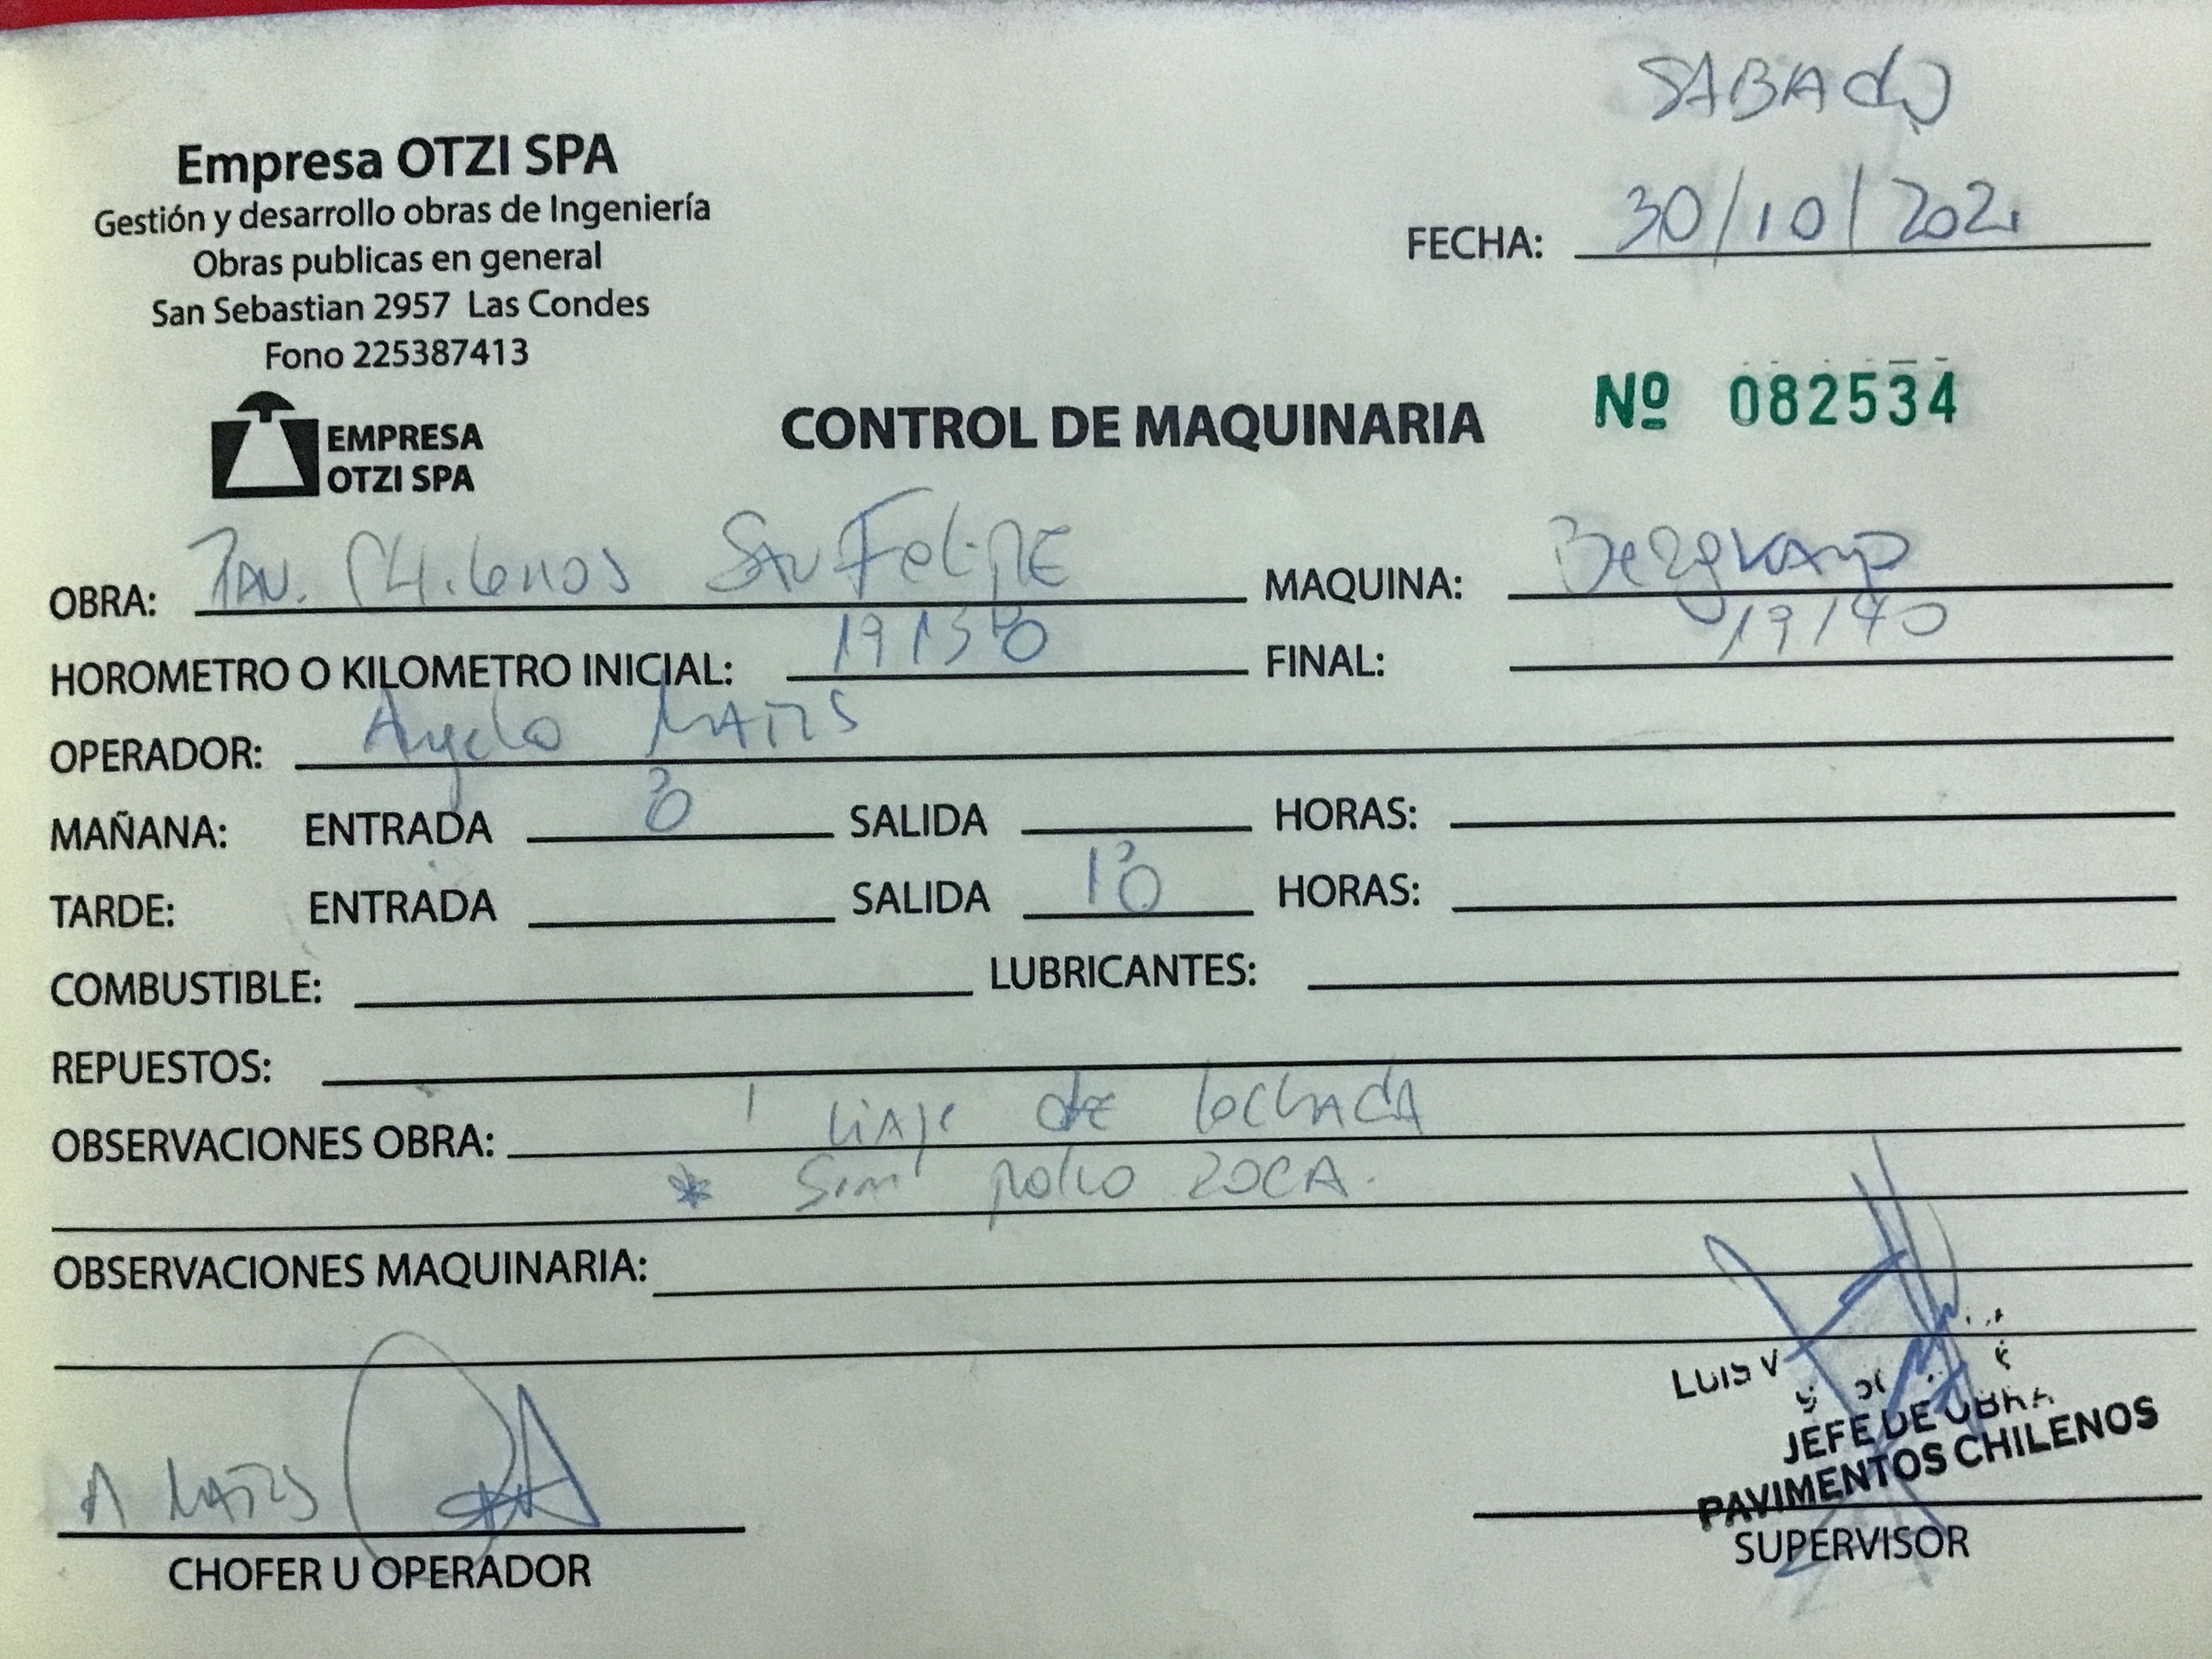 SABADO
Empresa OTZI SPA
Gestión y desarrollo obras de Ingeniería
Obras publicas en general
San Sebastian 2957 Las Condes
Fono 225387413
FECHA: 30/10/2021
EMPRESA
OTZI SPA
CONTROL DE MAQUINARIA
Nº 082534
OBRA: PAV. CHilenos SAN FeliPE MAQUINA:
HOROMETRO O KILOMETRO INICIAL: FINAL: 19140
OPERADOR: Angelo
MAÑANA: ENTRADA 8 SALIDA HORAS:
TARDE: ENTRADA SALIDA 18 HORAS:
COMBUSTIBLE: LUBRICANTES:
REPUESTOS:
OBSERVACIONES OBRA: 1 ViAje dE lechAdA
* polvo ROCA.
OBSERVACIONES MAQUINARIA:
LUIS V
JEFE DE OBRA
PAVIMENTOS CHILENOS
CHOFER U OPERADOR
SUPERVISOR